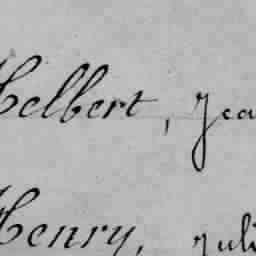 Helbert, Jea
Henry, Juli